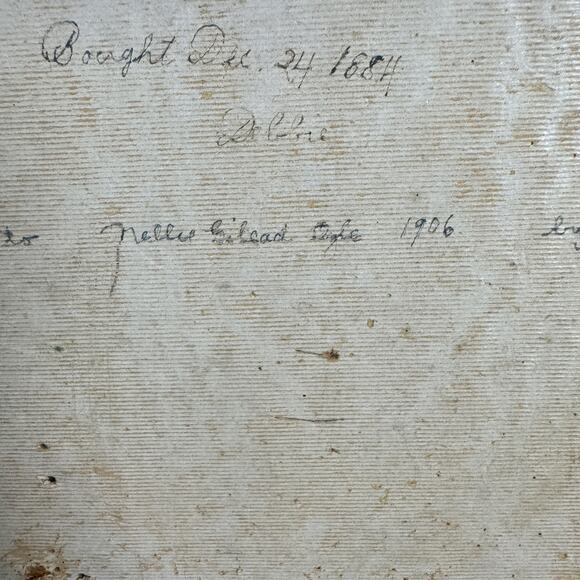 Bought Dec. 24 1884
Debbie
to Nellie Gilead Ogle 1906 by